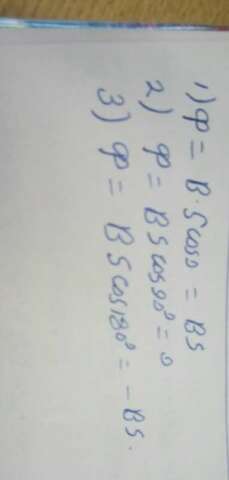 1) φ = B·S cos0 = BS
2) φ = BS cos90° = 0
3) φ = BS cos180° = -BS.